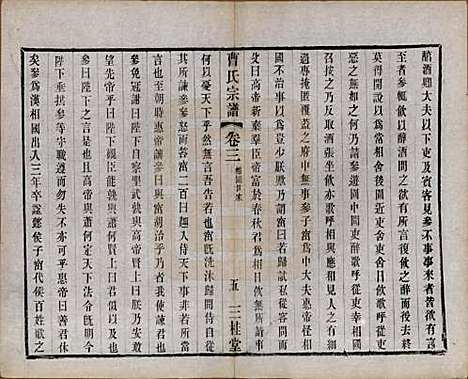 醕酒卿大夫以下及賓客見參不事事來者皆欲有言
至者參輒飲以醇酒間之欲有所言復飲之醉而後去終
莫得開說以爲常相舍後園近吏舍吏舍日飲歌呼從吏
惡之無如之何乃請參遊園中聞吏醉歌呼從吏幸相國
召按之乃反取酒張坐飲亦歌呼與相應和參見人之有細
過專掩匿覆蓋之府中無事參子窋爲中大夫惠帝怪相
國不治事以爲豈少朕歟乃謂窋曰若歸試私從容問而
父曰高帝新棄羣臣帝富於春秋君爲相日飲無所請事
曹氏宗譜 卷三 相國世家 五 三桂堂
何以憂天下乎然無言吾告若也窋旣洗沐歸閒侍自從其
所諫參參怒而笞窋二百曰趨入侍天下事非若所當言
也至朝時惠帝讓參曰與窋胡治乎乃者我使諫君也
參免冠謝曰陛下自察聖武孰與高帝上曰朕乃安敢
望先帝乎曰陛下觀臣能孰與蕭何賢上曰君似不及也
參曰陛下言之是也且高帝與蕭何定天下法令旣明今
陛下垂拱參等守職遵而勿失不亦可乎惠帝曰善君休
矣參爲漢相國出入三年卒諡懿侯子窋代侯百姓歌之